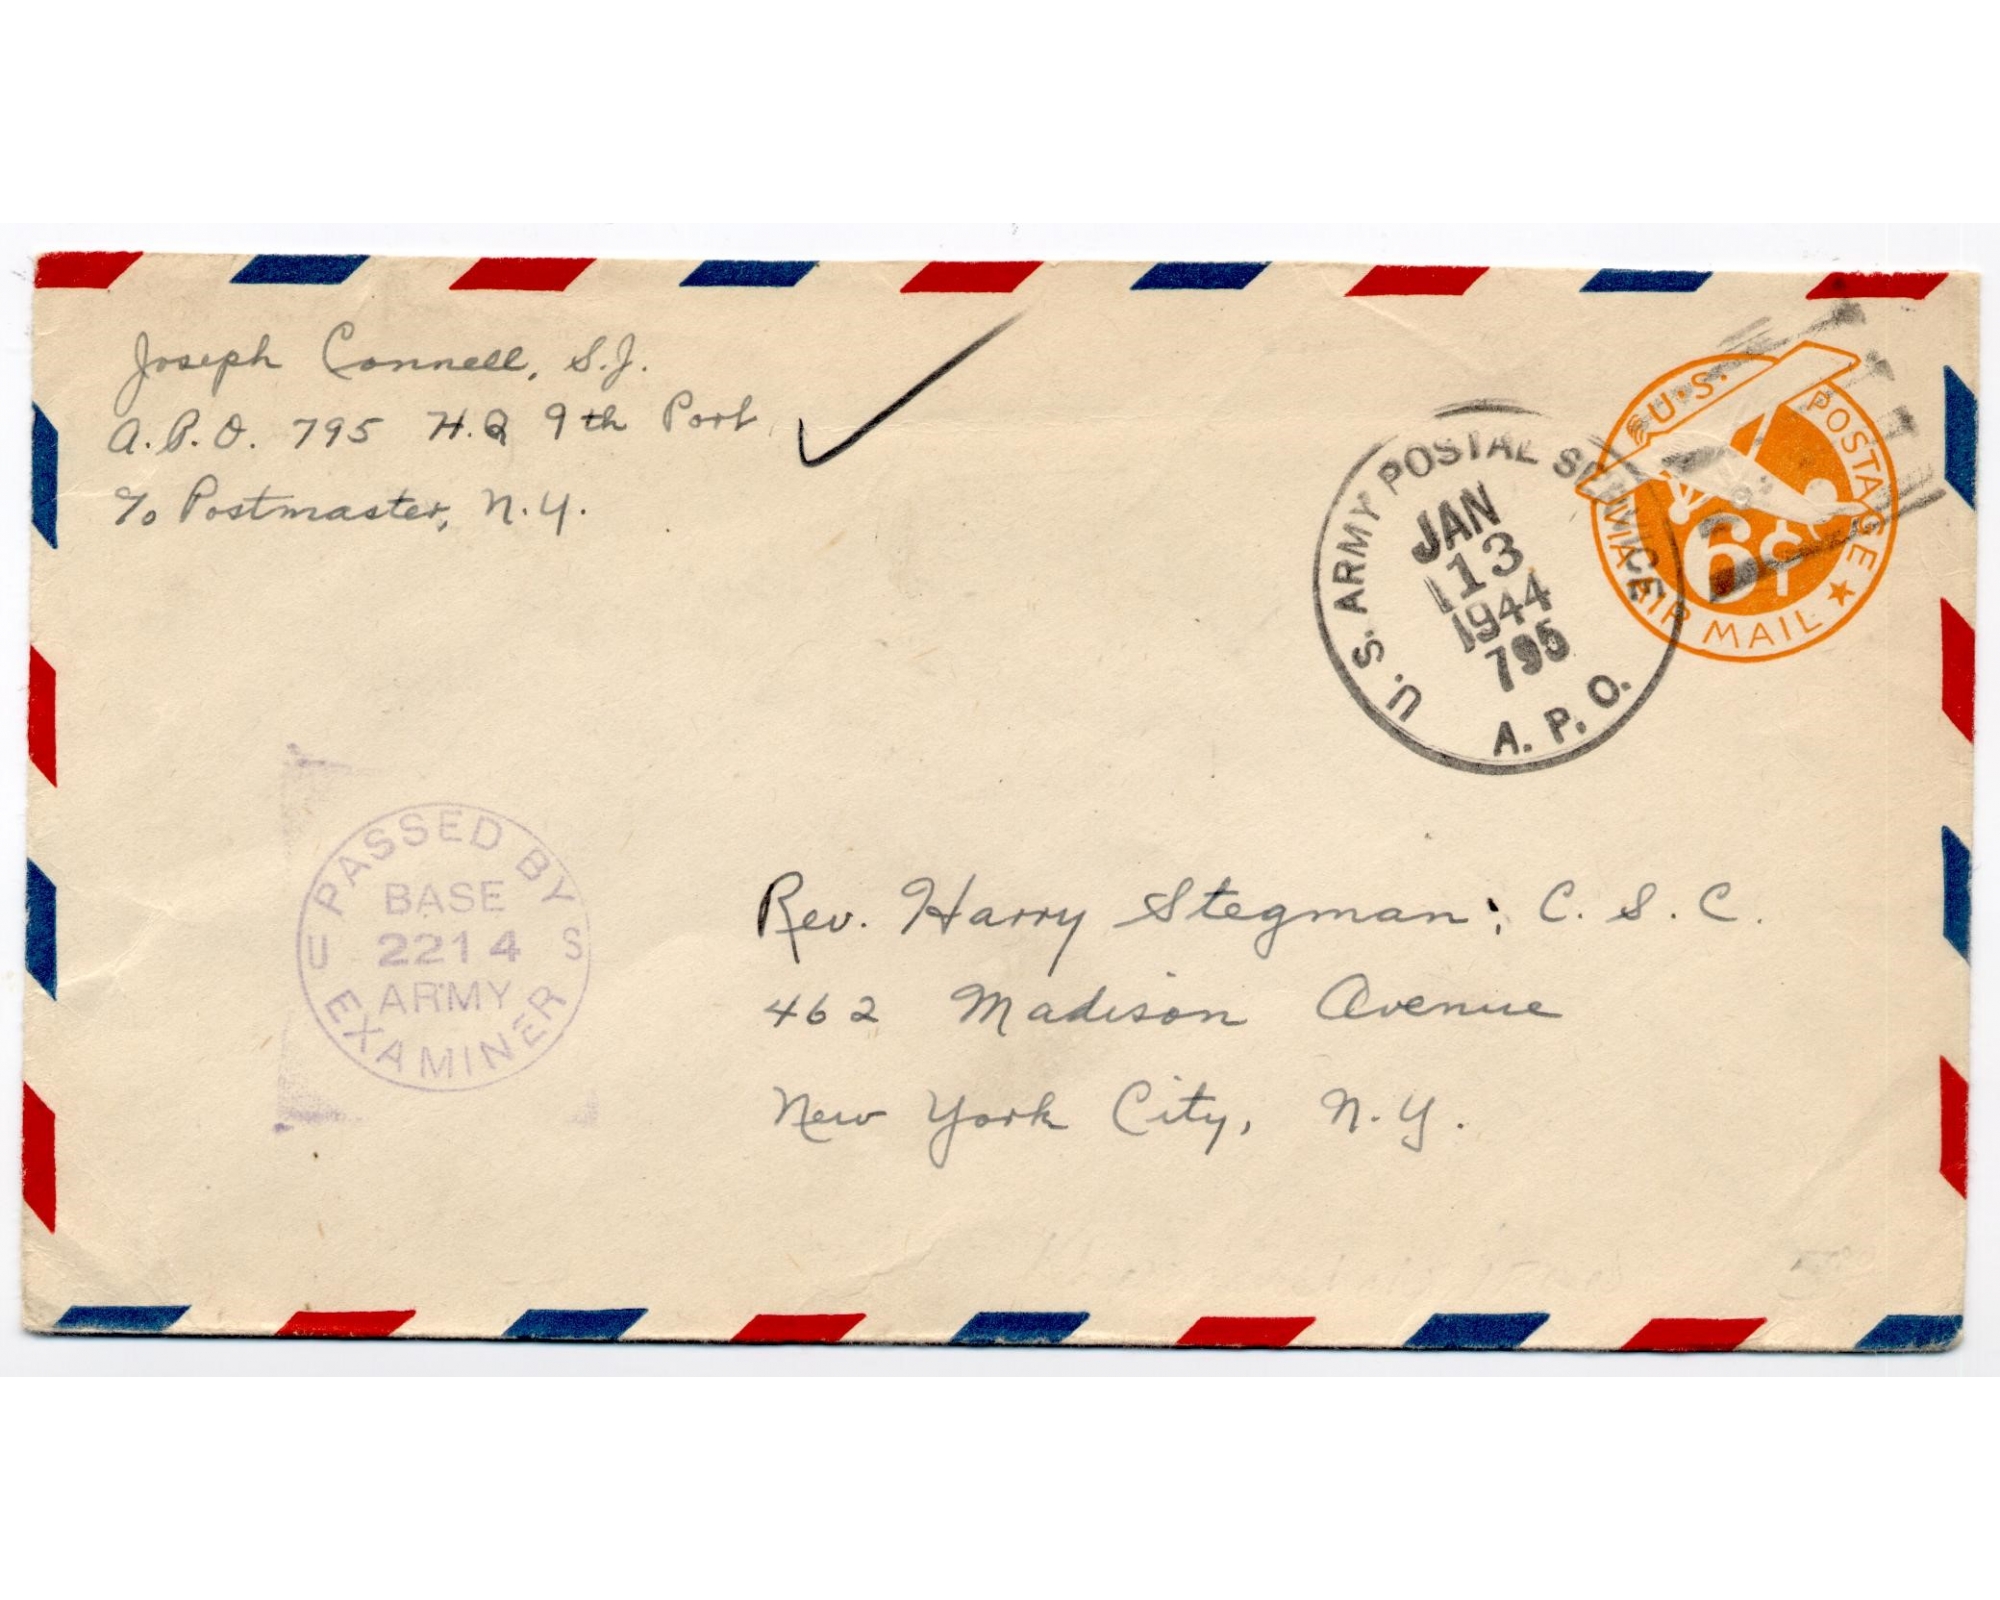 Joseph Connell, S.J.
A.P.O. 795 H.Q 9th Port
c/o Postmaster, N.Y.
U.S. ARMY POSTAL SERVICE
JAN
13
1944
795
A.P.O.
U.S. POSTAGE
6¢
VIA AIR MAIL
PASSED BY
BASE
U 2214 S
ARMY
EXAMINER
Rev. Harry Stegman, C.S.C.
462 Madison Avenue
New York City, N.Y.